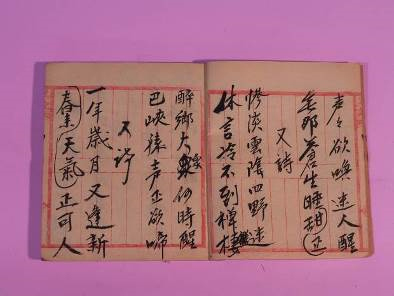 声々欲喚迷人醒
無那蒼生睡甜正
又詩
惨淡雲陰四野迷
休言冷不到棲
醉鄉大何時醒
巴峽猿声正欲啼
又詩
一年歲月又逢新
春天氣正可人